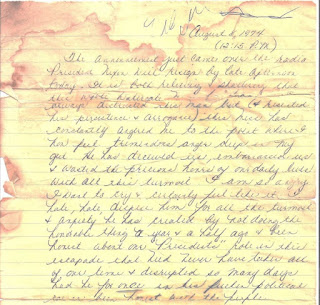 August 8, 1974
(12:15 P.M.)
The Announcement just came over the radio
President Nixon will resign by late afternoon
today. It is both relieving & shocking
this
always this man but (& hated
his persistence & arrogance) this has
constantly me to the point where I
have felt tremendous anger deep in my
gut. He has deceived us, embarrassed us
& wasted the precious hours of our daily lives
with all this turmoil. I am so angry
I want to cry & certainly feel like it. I
hate, hate, despise him for all the turmoil
& anxiety he has created by not doing the
honorable thing a year & a half ago & been
honest about our "President's" role in this
escapade that had never have taken all
of our time & disrupted so many days
had he for once in his political
career been honest with the people